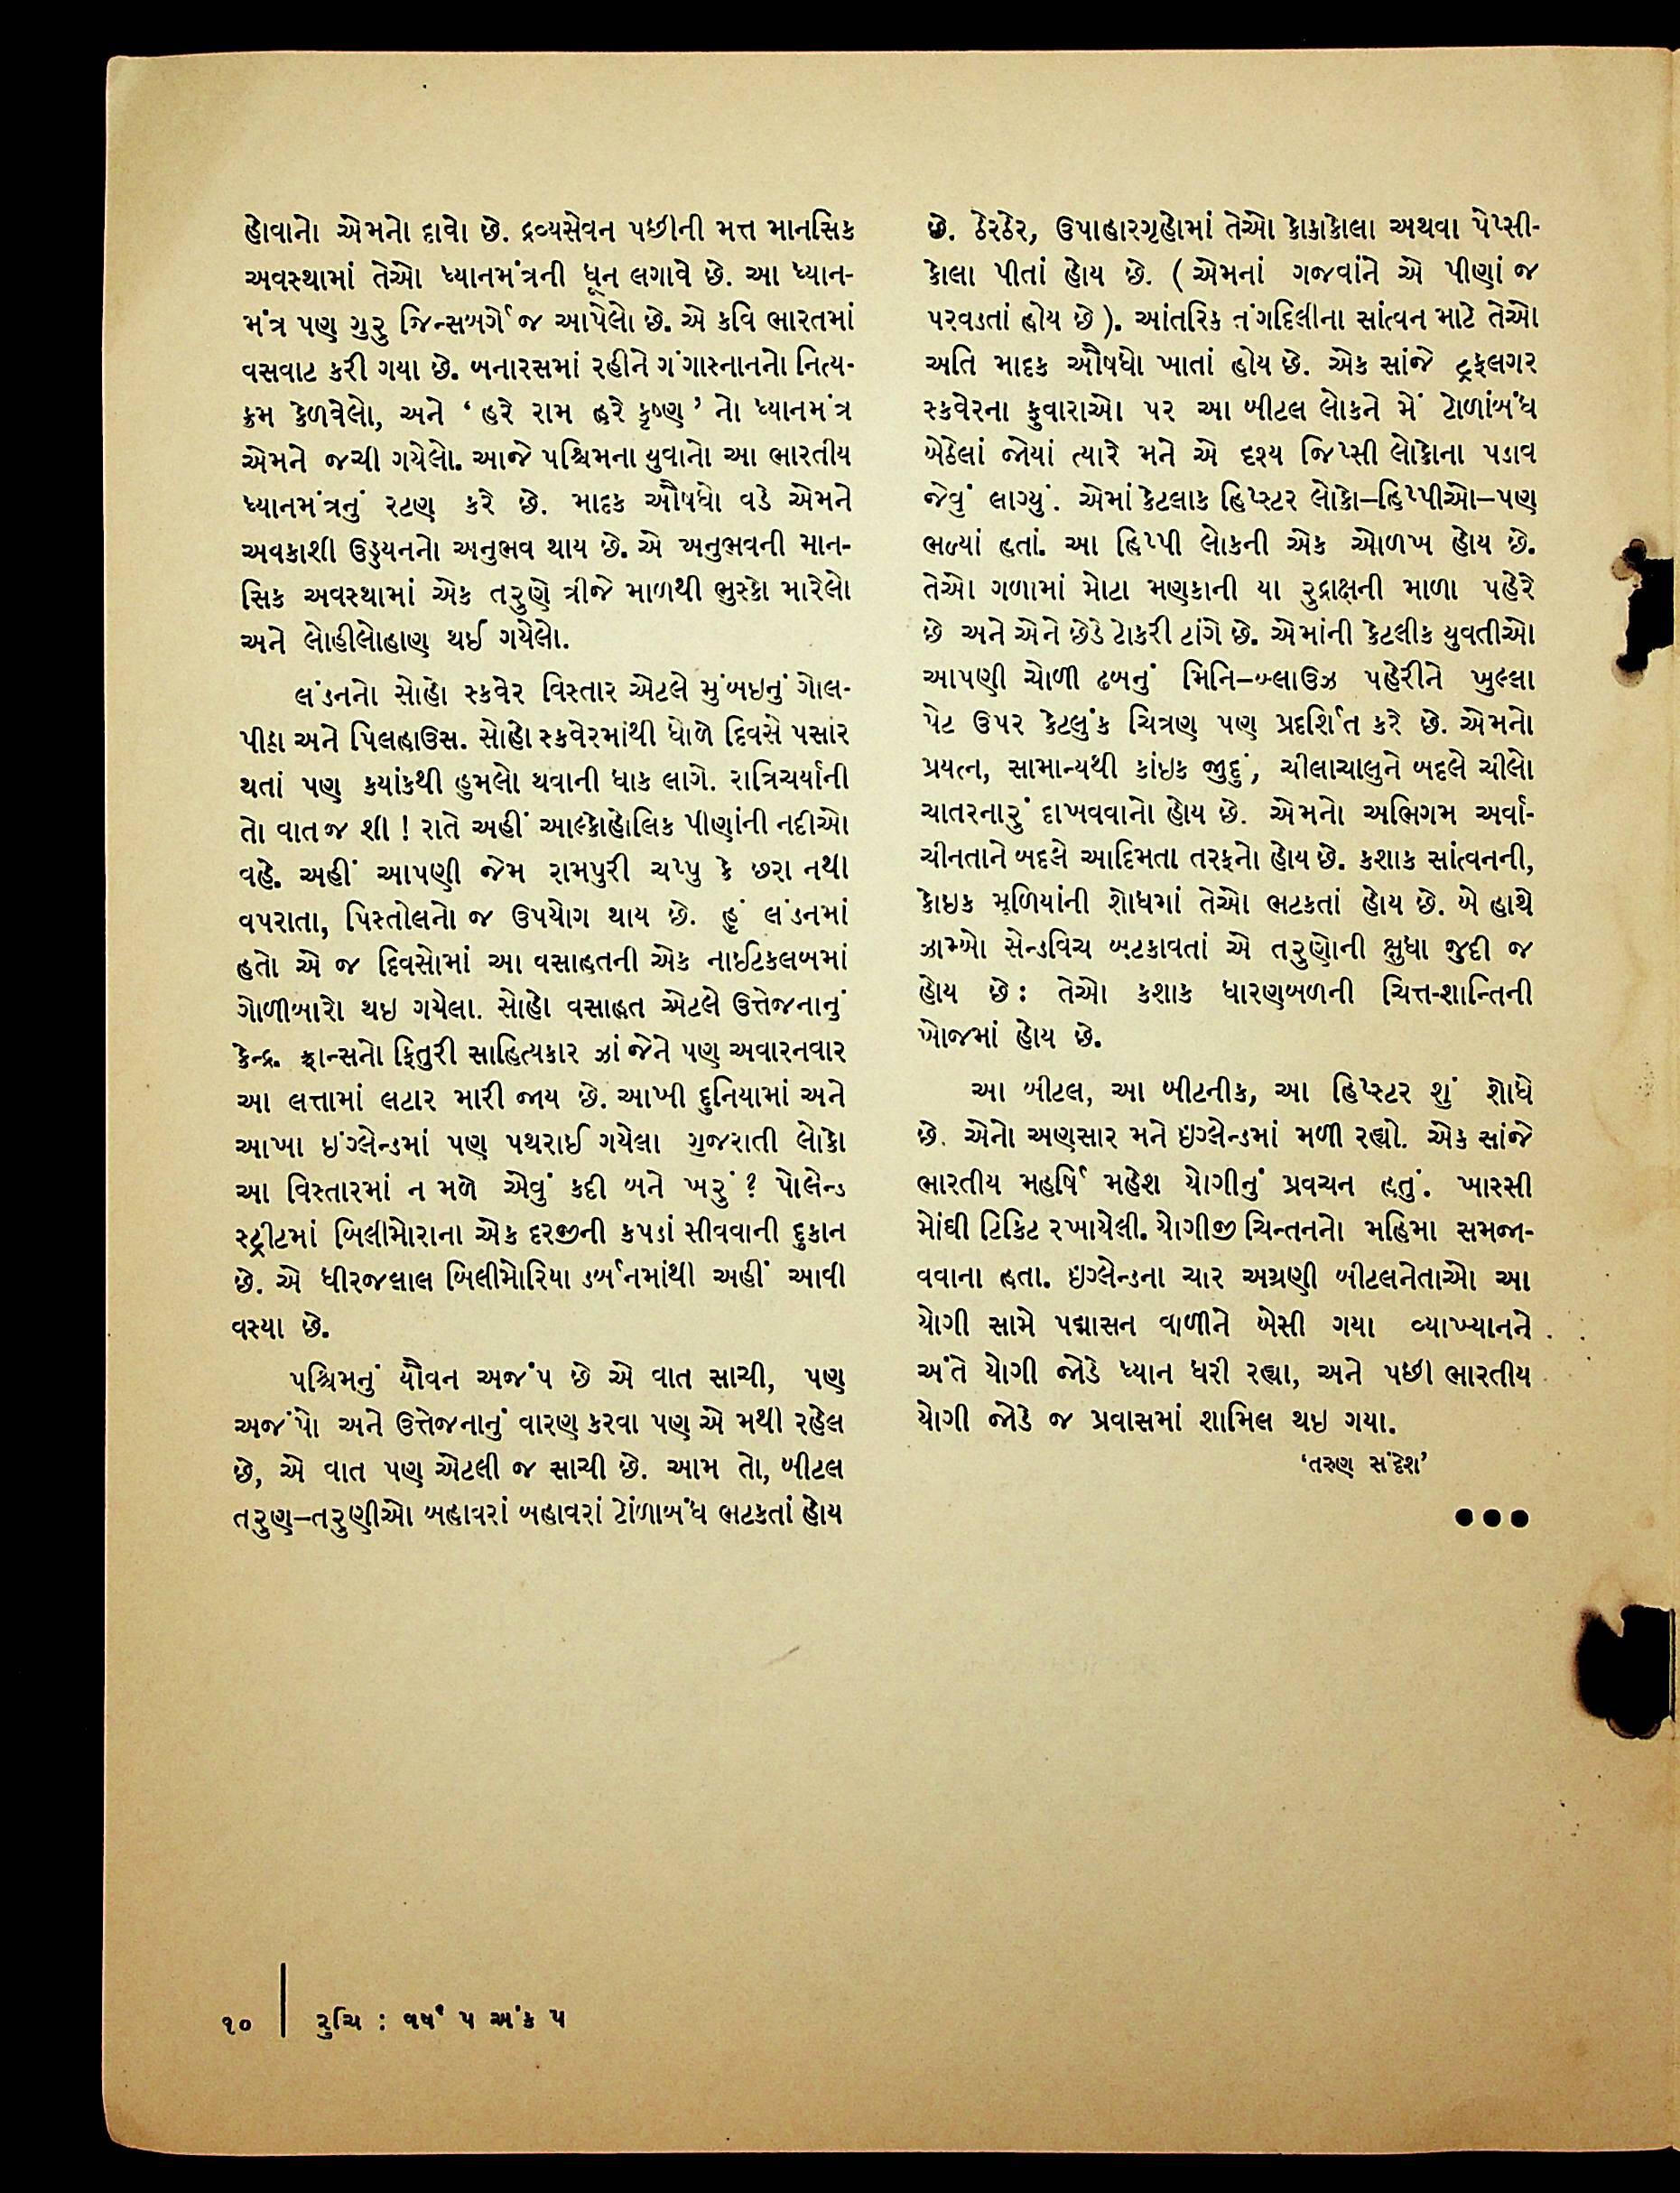 હોવાનો એમનો દાવો છે. દ્રવ્યસેવન પછીની મત્ત માનસિક
અવસ્થામાં તેઓ ધ્યાનમંત્રની ધૂન લગાવે છે. આ ધ્યાન-
મંત્ર પણ ગુરુ જિન્સબર્ગે જ આપેલો છે. એ કવિ ભારતમાં
વસવાટ કરી ગયા છે. બનારસમાં રહીને ગંગાસ્નાનનો નિત્ય-
ક્રમ કેળવેલો, અને ‘ હરે રામ હરે કૃષ્ણ ’ નો ધ્યાનમંત્ર
એમને જચી ગયેલો. આજે પશ્ચિમના યુવાનો આ ભારતીય
ધ્યાનમંત્રનું રટણ કરે છે. માદક ઔષધો વડે એમને
અવકાશી ઉડ્ડયનનો અનુભવ થાય છે. એ અનુભવની માન-
સિક અવસ્થામાં એક તરુણે ત્રીજે માળથી ભુસ્કો મારેલો
અને લોહીલોહાણ થઈ ગયેલો.
લંડનનો સોહો સ્કવેર વિસ્તાર એટલે મુંબઇનું ગોલ-
પીઠા અને પિલહાઉસ. સોહો સ્કવેરમાંથી ધોળે દિવસે પસાર
થતાં પણ કયાંકથી હુમલો થવાની ધાક લાગે. રાત્રિચર્યાની
તો વાત જ શી ! રાતે અહીં આલ્કોહોલિક પીણાંની નદીઓ
વહે. અહીં આપણી જેમ રામપુરી ચપ્પુ કે છરા નથી
વપરાતા, પિસ્તોલનો જ ઉપયોગ થાય છે. હું લંડનમાં
હતો એ જ દિવસોમાં આ વસાહતની એક નાઇટકલબમાં
ગોળીબારો થઇ ગયેલા. સોહો વસાહત એટલે ઉત્તેજનાનું
કેન્દ્ર. ફ્રાન્સનો ફિતુરી સાહિત્યકાર ઝાં જેને પણ અવારનવાર
આ લત્તામાં લટાર મારી જાય છે. આખી દુનિયામાં અને
આખા ઇંગ્લેન્ડમાં પણ પથરાઈ ગયેલા ગુજરાતી લોકો
આ વિસ્તારમાં ન મળે એવું કદી બને ખરું ? પોલેન્ડ
સ્ટ્રીટમાં બિલીમોરાના એક દરજીની કપડાં સીવવાની દુકાન
છે. એ ધીરજલાલ બિલીમોરિયા ડર્બનમાંથી અહીં આવી
વસ્યા છે.
પશ્ચિમનું યૌવન અજંપ છે એ વાત સાચી, પણ
અજંપો અને ઉત્તેજનાનું વારણ કરવા પણ એ મથી રહેલ
છે, એ વાત પણ એટલી જ સાચી છે. આમ તો, બીટલ
તરુણ–તરુણીઓ બહાવરાં બહાવરાં ટોળાબંધ ભટકતાં હોય
છે. ઠેરઠેર, ઉપાહારગૃહોમાં તેઓ કોકાકોલા અથવા પેપ્સી-
કોલા પીતાં હોય છે. ( એમનાં ગજવાંને એ પીણાં જ
પરવડતાં હોય છે ). આંતરિક તંગદિલીના સાંત્વન માટે તેઓ
અતિ માદક ઔષધો ખાતાં હોય છે. એક સાંજે ટ્રફલગર
સ્કવેરના ફુવારાઓ પર આ બીટલ લોકને મેં ટોળાંબંધ
બેઠેલાં જોયાં ત્યારે મને એ દશ્ય જિપ્સી લોકોના પડાવ
જેવું લાગ્યું. એમાં કેટલાક હિપ્સ્ટર લોકો–હિપ્પીઓ–પણ
ભળ્યાં હતાં. આ હિપ્પી લોકની એક ઓળખ હોય છે.
તેઓ ગળામાં મોટા મણકાની યા રુદ્રાક્ષની માળા પહેરે
છે અને એને છેડે ટોકરી ટાંગે છે. એમાંની કેટલીક યુવતીઓ
આપણી ચોળી ઢબનું મિનિ–બ્લાઉઝ પહેરીને ખુલ્લા
પેટ ઉપર કેટલુંક ચિત્રણ પણ પ્રદર્શિત કરે છે. એમનો
પ્રયત્ન, સામાન્યથી કાંઇક જુદું, ચીલાચાલુને બદલે ચીલો
ચાતરનારું દાખવવાનો હોય છે. એમનો અભિગમ અર્વા-
ચીનતાને બદલે આદિમતા તરફનો હોય છે. કશાક સાંત્વનની,
કોઇક મૂળિયાંની શોધમાં તેઓ ભટકતાં હોય છે. બે હાથે
ઝામ્બો સેન્ડવિચ બટકાવતાં એ તરુણોની ક્ષુધા જુદી જ
હોય છે : તેઓ કશાક ધારણબળની ચિત્ત-શાન્તિની
ખોજમાં હોય છે.
આ બીટલ, આ બીટનીક, આ હિપ્સ્ટર શું શોધે
છે. એનો અણસાર મને ઇંગ્લેન્ડમાં મળી રહ્યો. એક સાંજે
ભારતીય મહર્ષિ મહેશ યોગીનું પ્રવચન હતું. ખારસી
મોંઘી ટિકિટ રખાયેલી. યોગીજી ચિન્તનનો મહિમા સમજા-
વવાના હતા. ઇંગ્લેન્ડના ચાર અગ્રણી બીટલનેતાઓ આ
યોગી સામે પદ્માસન વાળીને બેસી ગયા વ્યાખ્યાનને
અંતે યોગી જોડે ધ્યાન ધરી રહ્યા, અને પછી ભારતીય
યોગી જોડે જ પ્રવાસમાં શામિલ થઇ ગયા.
‘તરુણ સંદેશ’
૧૦ | રુચિ : વર્ષ ૫ અંક ૫